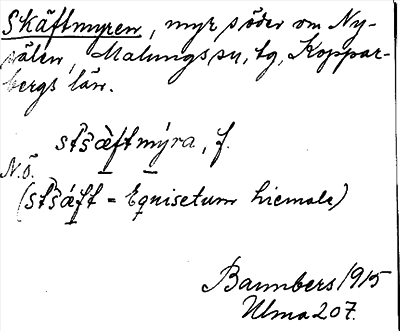 Skäftmyren, myr söder om Ny-
vålen, Malungs sn, tg, Koppar-
bergs län.
stšæ̀ftmýra, f.
N.Ö.
(stšáft = Equisetum hiemale)
Bannbers 1915
Ulma 207.